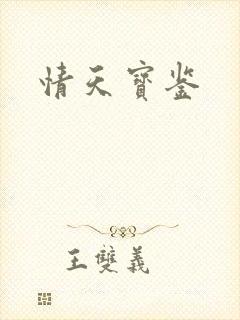 情天寶鉴
王雙義